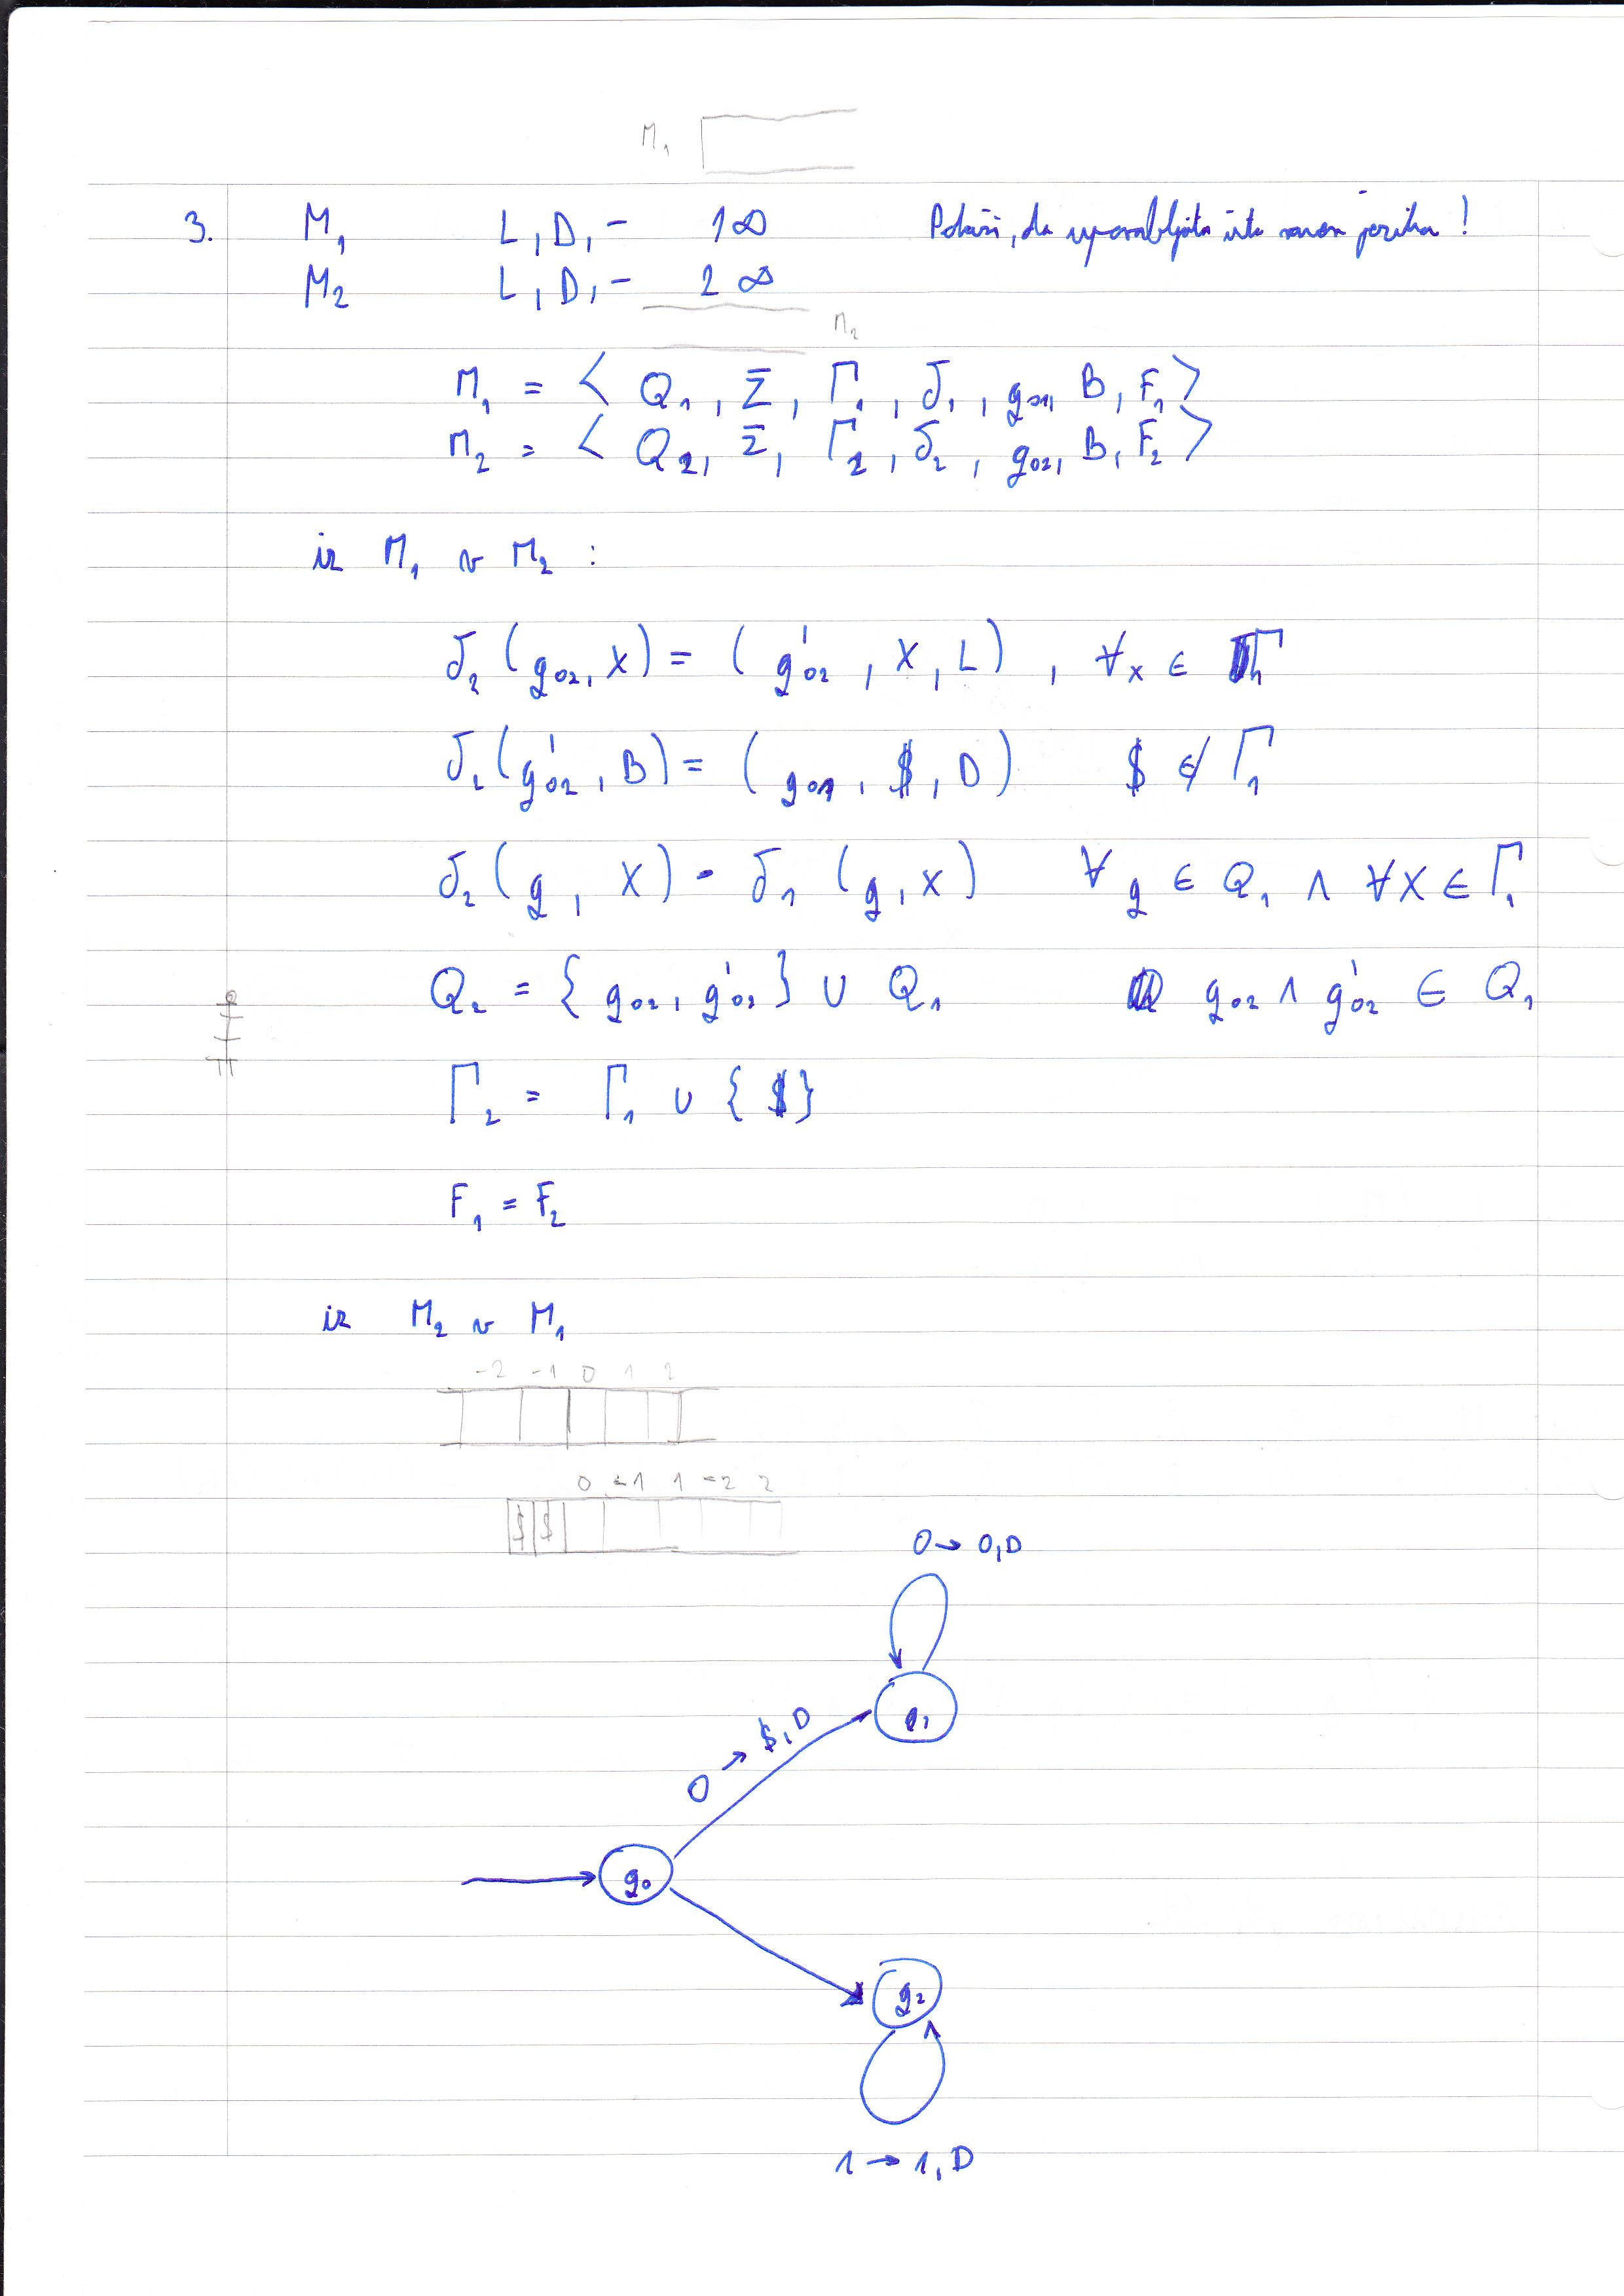 M₁
3. M₁ L, D, - 1∞ Pokaži, da uporabljata isto jezika!
M₂ L, D, - 2∞
M₂
M₁ = < Q₁, Σ, Γ₁, δ₁, q₀₁, B, F₁ >
M₂ = < Q₂, Σ, Γ₂, δ₂, q₀₂, B, F₂ >
iz M₁ v M₂ :
δ₂ (q₀₂, X) = ( q'₀₂, X, L) , ∀x ∈ Γ₁
δ₂ (q'₀₂, B) = ( q₀₁, $, D) $ ∉ Γ₁
δ₂ ( q, X ) = δ₁ ( q, x ) ∀ q ∈ Q₁ ∧ ∀X ∈ Γ₁
Q₂ = { q₀₂, q'₀₂ } ∪ Q₁ q₀₂ ∧ q'₀₂ ∈ Q₁
Γ₂ = Γ₁ ∪ { $ }
F₁ = F₂
iz M₂ v M₁
-2 -1 0 1 2
0 -1 1 -2 2
$ $
0 → 0, D
q₁
0 → $, D
q₀
q₂
1 → 1, D